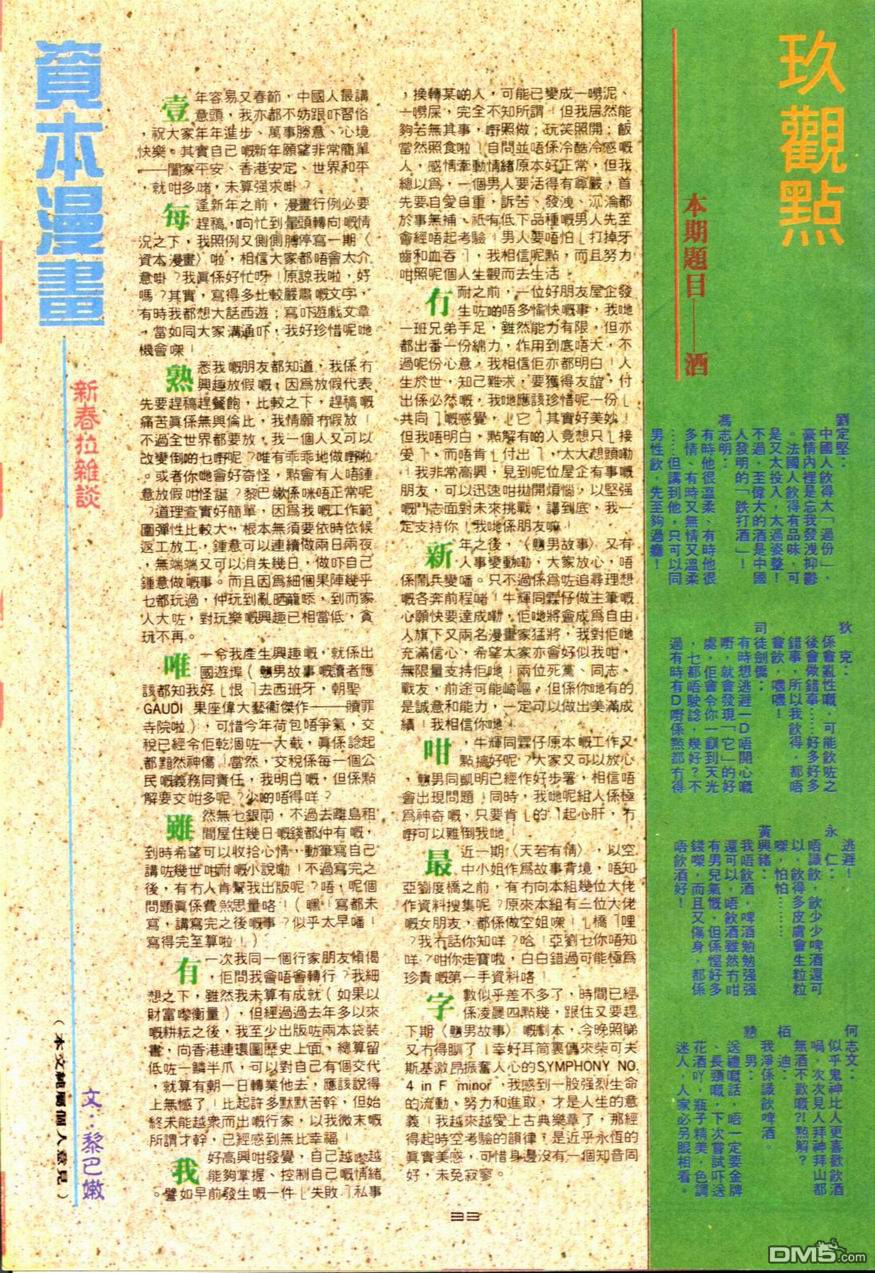 資本漫畫
新春拉雜談
文：黎巴嫩
（本文純屬個人意見）
壹年容易又春節，中國人最講
意頭，我亦都不妨跟吓習俗
，祝大家年年進步、萬事勝意、心境
快樂。其實自己嘅新年願望非常簡單
——闔家平安、香港安定、世界和平
，就咁多啫，未算强求啩？
每逢新年之前，漫畫行例必要
趕稿，响忙到暈頭轉向嘅情
況之下，我照例又側側膊停寫一期〈
資本漫畫〉啦，相信大家都唔會太介
意啩？我眞係好忙呀！原諒我啦，好
嗎？其實，寫得多比較嚴肅嘅文字，
有時我都想大話西遊；寫吓遊戲文章
，當如同大家溝通吓，我好珍惜呢啲
機會㗎！
熟悉我嘅朋友都知道，我係冇
興趣放假嘅；因爲放假代表
先要趕稿趕餐飽，比較之下，趕稿嘅
痛苦眞係無與倫比，我情願冇假放！
不過全世界都要放，我一個人又可以
改變倒的乜嘢呢？唯有乖乖地做嘢啦
。或者你哋會好奇怪，點會有人唔鍾
意放假咁怪誕？黎巴嫩係咪唔正常呢
？道理查實好簡單，因爲我嘅工作範
圍彈性比較大，根本無須要依時依候
返工放工，鍾意可以連續做兩日兩夜
，無端端又可以消失幾日，做吓自己
鍾意做嘅事。而且因爲細個果陣幾乎
乜都玩過，仲玩到亂晒籠𠻹，到而家
人大咗，對玩樂嘅興趣已相當低，貪
玩不再。
唯一令我產生興趣嘅，就係出
國遊埠（戇男故事嘅讀者應
該都知我好「恨」去西班牙，朝聖
GAUDI果座偉大藝術傑作——贖罪
寺院啦），可惜今年荷包唔爭氣，交
稅已經令佢乾涸咗一大截，眞係諗起
都黯然神傷！當然，交稅係每一個公
民嘅義務同責任，我明白嘅，但係點
解要交咁多呢？少啲唔得咩？
雖然無乜銀兩，不過去離島租
間屋住幾日嘅錢都仲有嘅，
到時希望可以收拾心情，動筆寫自己
講咗幾世咁耐嘅小說嘞！不過寫完之
後，有冇人肯幫我出版呢？唔，呢個
問題眞係費煞思量咯！（嘿！寫都未
寫，講寫完之後嘅事？似乎太早噃！
寫得完至算啦！）
有一次我同一個行家朋友傾偈
，佢問我會唔會轉行？我細
想之下，雖然我未算有成就（如果以
財富嚟衡量），但經過過去年多以來
嘅耕耘之後，我至少出版咗兩本袋裝
書，向香港連環圖歷史上面，總算留
低咗一鱗半爪，可以對自己有個交代
，就算有朝一日轉業他去，應該說得
上無憾了！比起許多默默苦幹，但始
終未能越衆而出嘅行家，以我微末嘅
所謂才幹，已經感到無比幸福！
我好高興咁發覺，自己越嚟越
能夠掌握、控制自己嘅情緒
。譬如早前發生嘅一件「失敗」私事
，換轉某啲人，可能已變成一嚿泥、
一嚿屎，完全不知所謂！但我居然能
夠若無其事，嘢照做；玩笑照開；飯
當然照食啦！自問並唔係冷酷冷感嘅
人，感情牽動情緒原本好正常，但我
總以爲，一個男人要活得有尊嚴，首
先要自愛自重，訴苦、發洩、沉淪都
於事無補，祇有低下品種嘅男人先至
會經唔起考驗！男人要唔怕「打掉牙
齒和血吞」，我相信呢點，而且努力
咁照呢個人生觀而去生活。
冇耐之前，一位好朋友屋企發
生咗啲唔多愉快嘅事，我哋
一班兄弟手足，雖然能力有限，但亦
都出番一份綿力，作用到底唔大，不
過呢份心意，我相信佢亦都明白！人
生於世，知己難求，要獲得友誼，付
出係必然嘅，我哋應該珍惜呢一份「
共同」嘅感覺，「它」其實好美妙！
但我唔明白，點解有啲人竟想只「接
受」，而唔肯「付出」，太大想頭嘞
！我非常高興，見到呢位屋企有事嘅
朋友，可以迅速咁拋開煩惱，以堅强
嘅鬥志面對未來挑戰，講到底，我一
定支持你！我哋係朋友嘛！
新年之後，〈戇男故事〉又有
人事變動嘞，大家放心，唔
係鬧兵變噃。只不過係爲咗追尋理想
嘅各奔前程啫！牛輝同霖仔做主筆嘅
心願快要達成嘞，佢哋將會成爲自由
人旗下又兩名漫畫家猛將，我對佢哋
充滿信心，希望大家亦會好似我咁，
無限量支持佢哋！兩位死黨、同志、
戰友，前途可能崎嶇，但係你哋有的
是誠意和能力，一定可以做出美滿成
績！我相信你哋！
咁，牛輝同霖仔原本嘅工作又
點搞好呢？大家又可以放心
，戇男同凱明已經作好步署，相信唔
會出現問題！同時，我哋呢組人係極
爲神奇嘅，只要肯「的」起心肝，冇
嘢可以難倒我哋！
最近一期〈天若有情〉，以空
中小姐作爲故事背境，唔知
亞劉度橋之前，有冇向本組幾位大佬
作資料搜集呢？原來本組有三位大佬
嘅女朋友，都係做空姐㗎！「橋」哩
？我冇話你知咩？哈！亞劉乜你唔知
咩？咁你走寶啦，白白錯過可能極爲
珍貴嘅第一手資料咯！
字數似乎差不多了，時間已經
係凌晨四點幾，跟住又要趕
下期〈戇男故事〉嘅劇本，今晚照睇
又冇得瞓了！幸好耳筒裏傳來柴可夫
斯基激昂振奮人心的SYMPHONY NO.
4 in F minor，我感到一股强烈生命
的流動、努力和進取，才是人生的意
義！我越來越愛上古典樂章了，那經
得起時空考驗的韻律，是近乎永恆的
眞實美感，可惜身邊沒有一個知音同
好，未免寂寥。
33
玖觀點
本期題目——酒
劉定堅：
中國人飲得太「過份」，
豪情內裡是忘我發洩抑鬱
。法國人飲得有品味，可
是又太投入，太過姿整！
不過，至偉大的酒是中國
人發明的「跌打酒」！
馮志明：
有時他很溫柔、有時他很
多情、有時又無情又溫柔
……但講到他，只可以同
男性飲，先至夠過癮！
狄克：
係會亂性嘅，可能飲咗之
後會做錯事……好多好多
錯事，所以我飲得，都唔
會飲，嘿嘿！
司徒劍僑：
有時想逃避一D唔開心嘅
嘢，就會發現「它」的好
處，佢會令你一瞓到天光
，乜都唔駛諗，幾好？不
過有時有D嘢係點都冇得
逃避！
永仁：
唔識飲，飲少少啤酒還可
以，飲得多皮膚會生粒粒
㗎，怕怕………
黃興緒：
我唔飲酒，啤酒勉勉强强
還可以，唔飲酒雖然冇咁
有男兒氣慨，但係慳好多
錢㗎，而且又傷身，都係
唔飲酒好！
何志文：
似乎鬼神比人更喜歡飲酒
喎，次次見人拜神拜山都
無酒不歡嘅？！點解？
栢迪：
我淨係識飲啤酒。
戇男：
送禮嘅話，唔一定要金牌
、長頸嘅，下次嘗試吓送
花酒吖，瓶子精美，色調
迷人，人家必另眼相看。
DM5.com